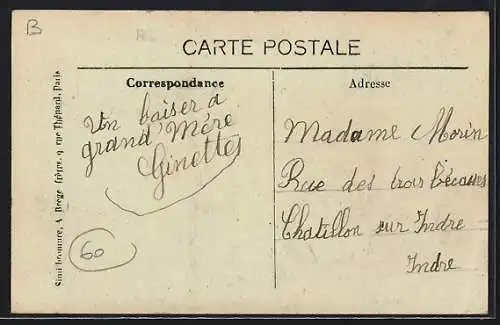 B
CARTE POSTALE
Correspondance
Adresse
Un baiser à
grand'Mère
Ginette
Madame Morin
Rue des trois bécasses
Chatillon sur Indre
Indre
60
frères, 9, rue Thénard, Paris